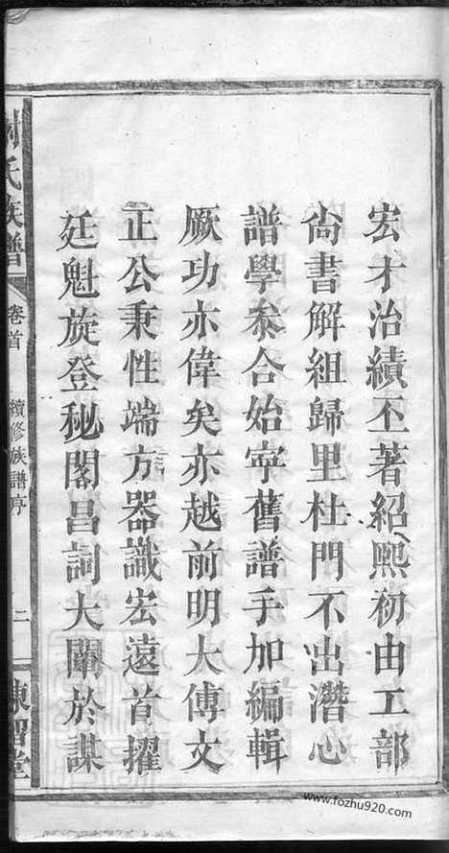 宏才治績丕著紹熙初由工部
尙書解組歸里杜門不出潛心
譜學叅合始寧舊譜手加編輯
厥功亦偉矣亦越前明大傅文
正公秉性端方器識宏遠首擢
廷魁旋登秘閣昌詞大闡於謀
氏族譜
卷首
續修族譜序
二
www.fozhu920.com